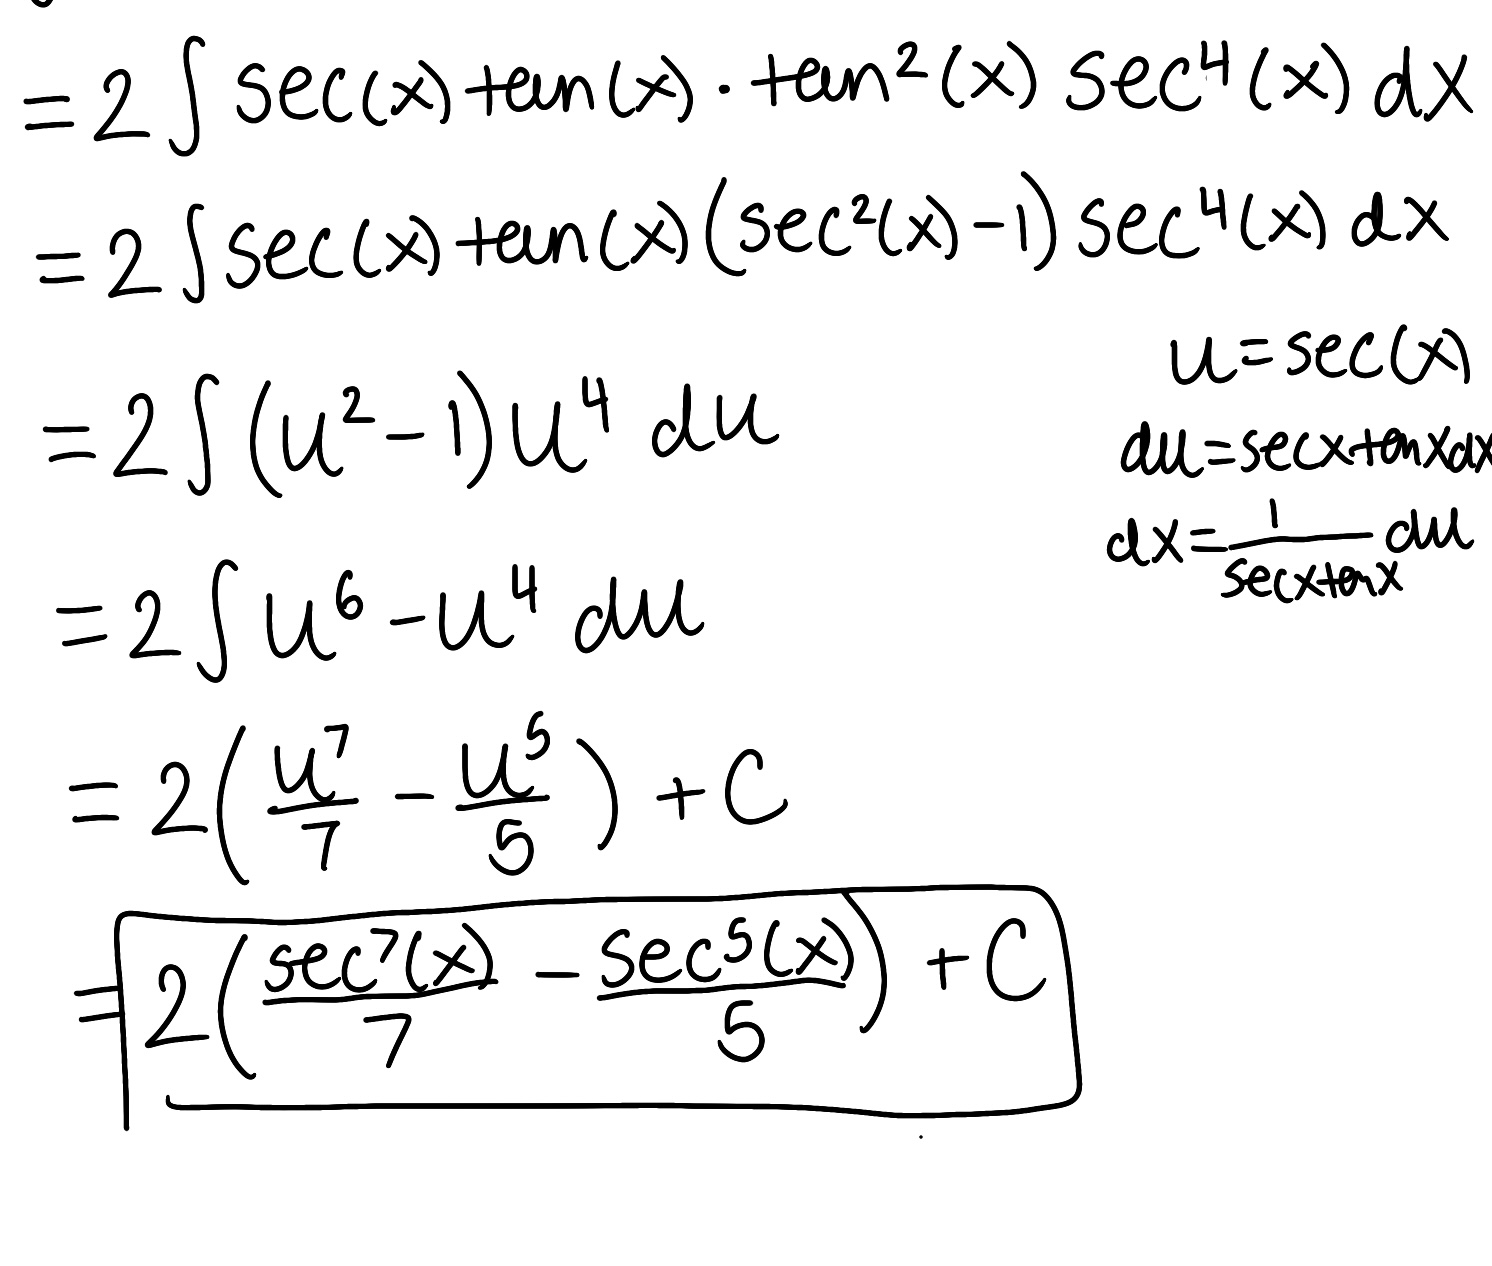 = 2 ∫ sec(x) tan(x) · tan²(x) sec⁴(x) dx
= 2 ∫ sec(x) tan(x) (sec²(x) - 1) sec⁴(x) dx
u = sec(x)
= 2 ∫ (u² - 1) u⁴ du
du = secx tanx dx
dx = 1/(secx tanx) du
= 2 ∫ u⁶ - u⁴ du
= 2 (u⁷/7 - u⁵/5) + C
= 2 (sec⁷(x)/7 - sec⁵(x)/5) + C